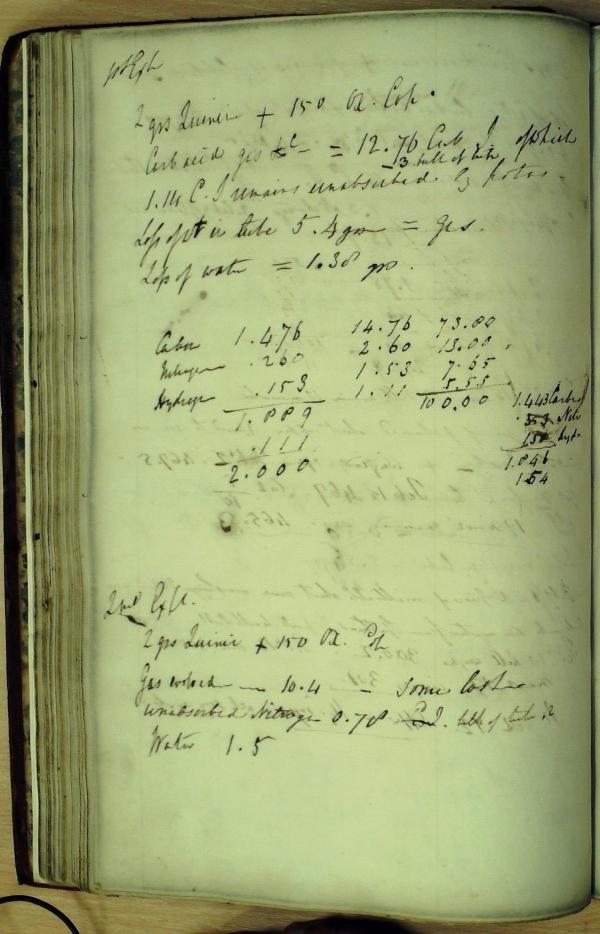 1st Expt
2 grs Quinine + 150 Ox. Cop.
Carb acid gas &c - = 12.76 Cub I. of which
- 3 bulk of tube
1.16 C. I remains unabsorbed by potas
Loss of pt in tube 5.4 grs = grs.
Loss of water = 1.38 grs.
Carbon 1.476 14.76 73.80
Nitrogen .260 2.60 13.00
Hydrogen .153 1.53 7.65
1.889 1.11 5.55
100.00
.111
2.000
1.443 Carbon
Nitr
153 hydr
1.846
154
2nd Expt.
2 grs Quinine + 150 Ox. Cop
Gas evolved - 10.4 - some lost
unabsorbed Nitrogen 0.78 C I. bulk of tube
Water 1.5